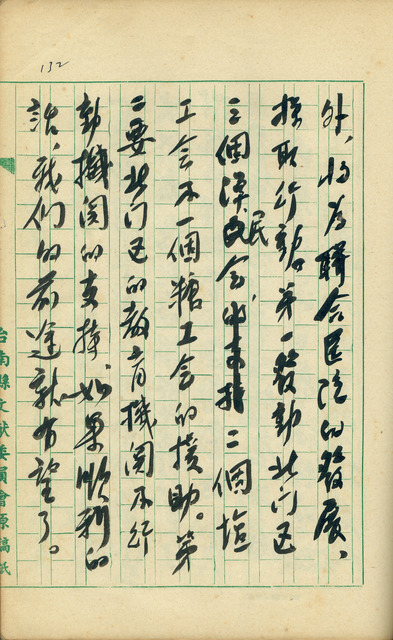 132
外、將為聯合医院的發展、
採取行動。第一發動北门区
三個漁民会出去找二個塩
工会不一個糖工会的援助。第
二要北门区的教育機関不行
動機関的支持。如果順利的
話、我们的前途就有望了。
台南縣文献委員會原稿紙